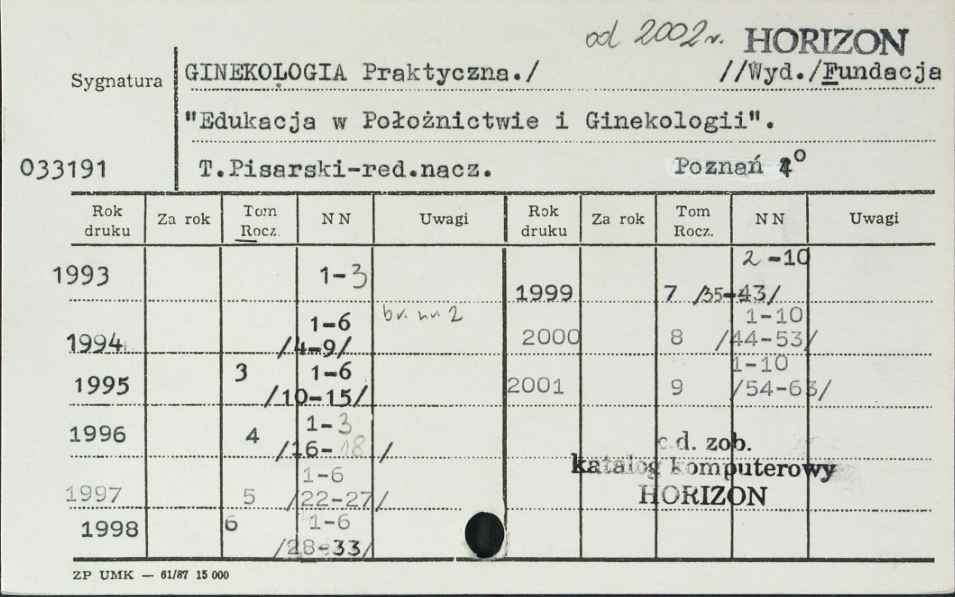 od 2002 r. HORIZON
Sygnatura GINEKOLOGIA Praktyczna./ //Wyd./Fundacja
"Edukacja w Położnictwie i Ginekologii".
033191 T.Pisarski-red.nacz. Poznań 4°
Rok druku Za rok Tom Rocz. NN Uwagi Rok druku Za rok Tom Rocz. NN Uwagi
1993 1-3
1994 1-6 /4-9/ br. nr. 2
1995 3 1-6 /10-15/
1996 4 1-3 /16-18/
1997 5 1-6 /22-27/
1998 6 1-6 /28-33/
1999 7 2-10 /35-43/
2000 8 1-10 /44-53/
2001 9 1-10 /54-63/
c.d. zob.
katalog komputerowy
HORIZON
ZP UMK — 61/87 15 000